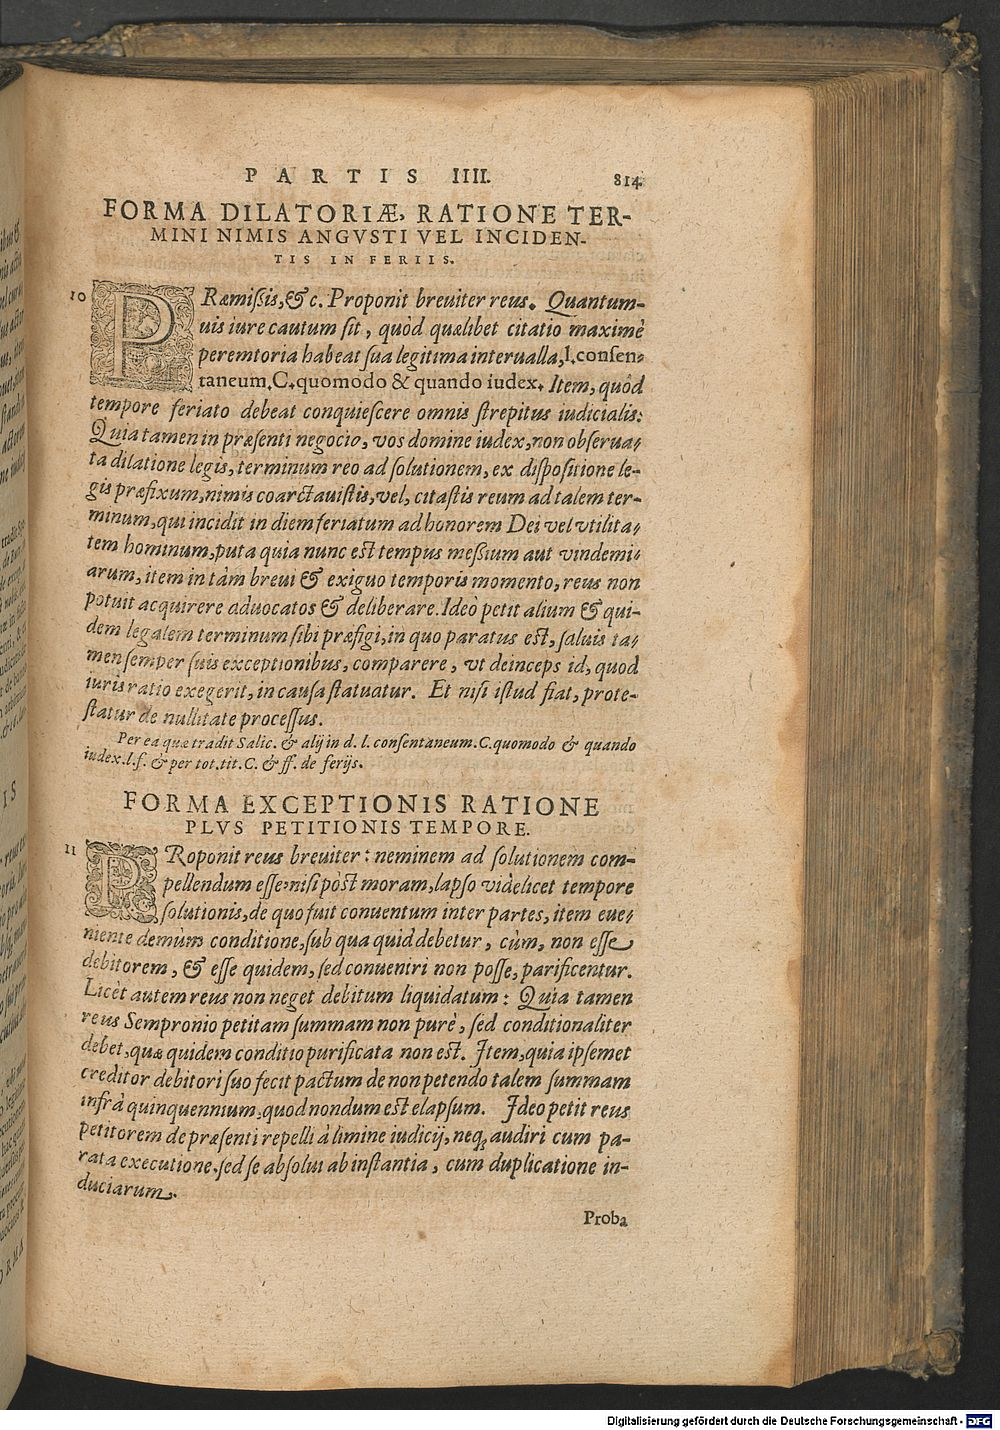 PARTIS IIII. 814.
FORMA DILATORIÆ, RATIONE TER-
MINI NIMIS ANGVSTI VEL INCIDEN-
TIS IN FERIIS.
10 PRæmißis, & c. Proponit breuiter reus. Quantum-
uis iure cautum sit, quòd quælibet citatio maximè
peremtoria habeat sua legitima interualla, l. consen-
taneum, C. quomodo & quando iudex. Item, quôd
tempore feriato debeat conquiescere omnis strepitus iudicialis:
Quia tamen in præsenti negocio, vos domine iudex, non obserua-
ta dilatione legis, terminum reo ad solutionem, ex dispositione le-
gis præfixum, nimis coarctauistis, vel, citastis reum ad talem ter-
minum, qui incidit in diem feriatum ad honorem Dei vel vtilita-
tem hominum, puta quia nunc est tempus messium aut vindemi-
arum, item in tàm breui & exiguo temporis momento, reus non
potuit acquirere aduocatos & deliberare. Ideò petit alium & qui-
dem legalem terminum sibi præfigi, in quo paratus est, saluis ta-
men semper suis exceptionibus, comparere, vt deinceps id, quod
iuris ratio exegerit, in causa statuatur. Et nisi istud fiat, prote-
statur de nullitate processus.
Per ea quæ tradit Salic. & alij in d. l. consentaneum. C. quomodo & quando
iudex. l. f. & per tot. tit. C. & ff. de ferijs.
FORMA EXCEPTIONIS RATIONE
PLVS PETITIONIS TEMPORE.
11 PRoponit reus breuiter: neminem ad solutionem com-
pellendum esse nisi pòst moram, lapso videlicet tempore
solutionis, de quo fuit conuentum inter partes, item eue-
niente demùm conditione, sub qua quid debetur, cùm, non esse
debitorem, & esse quidem, sed conueniri non posse, parificentur.
Licèt autem reus non neget debitum liquidatum: Quia tamen
reus Sempronio petitam summam non purè, sed conditionaliter
debet, quæ quidem conditio purificata non est. Item, quia ipsemet
creditor debitori suo fecit pactum de non petendo talem summam
infrà quinquennium, quod nondum est elapsum. Ideo petit reus
petitorem de præsenti repelli à limine iudicij, neq; audiri cum pa-
rata executione, sed se absolui ab instantia, cum duplicatione in-
duciarum.
Proba
Digitalisierung gefördert durch die Deutsche Forschungsgemeinschaft - DFG